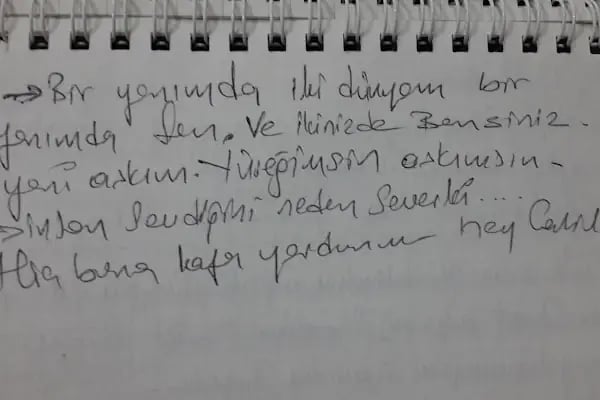 → Bir yanımda iki dünyam bir
yanımda sen. Ve ikinizde Bensiniz.
yani aşkım. Yüreğimsin aşkımsın.
→ insan sevdiğini neden severki....
bana kafa yardımın Hey